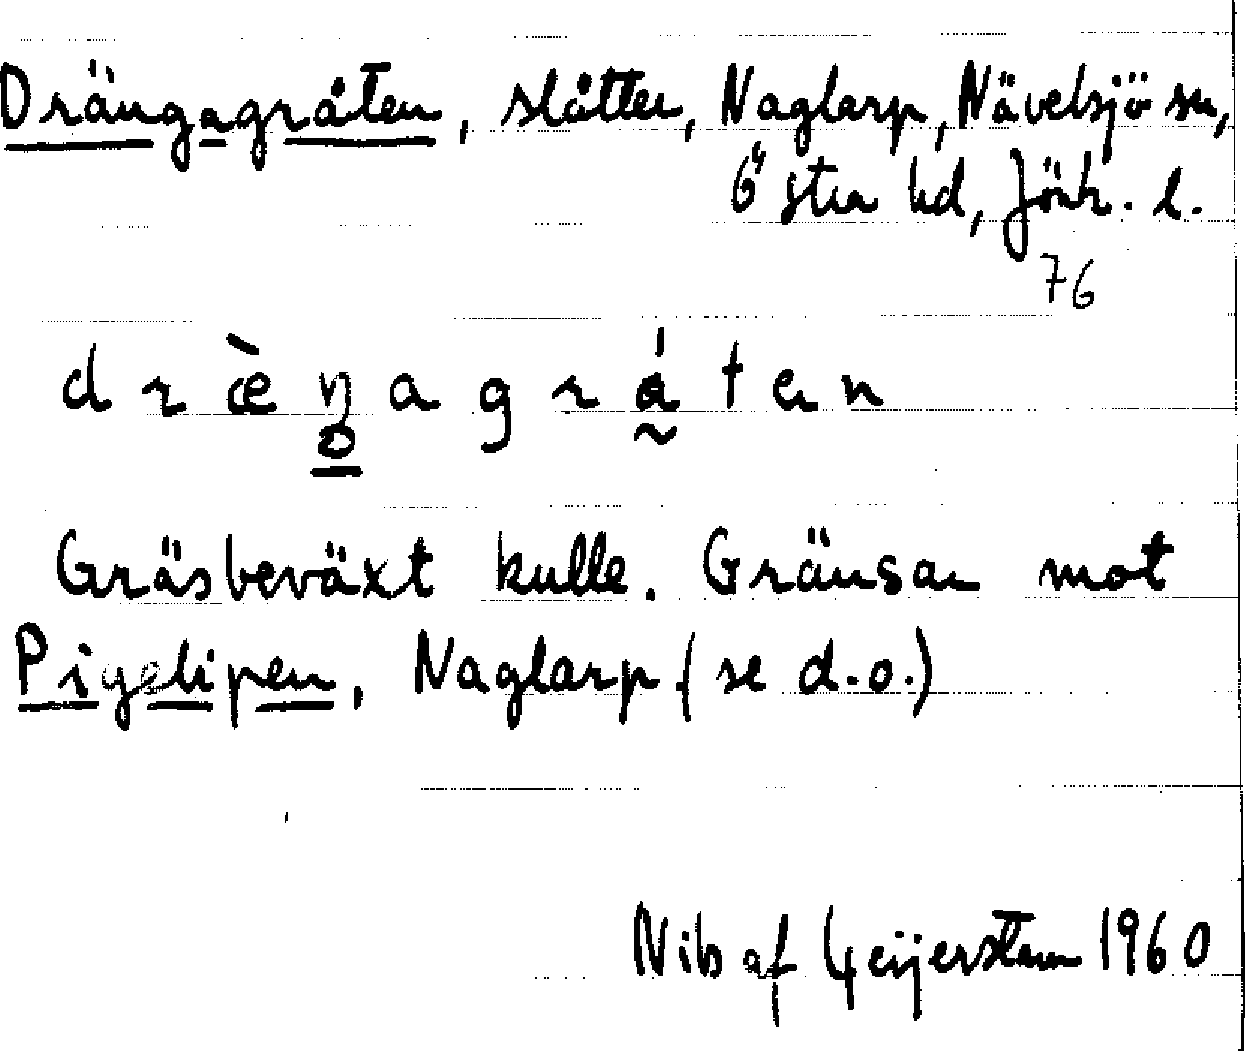 Drängagråten, slåtter, Naglarp, Nävelsjö sn,
Östra hd, Jönk. l.
76
d r æ̀ ŋ a g r ǻ t e n
Gräsbeväxt kulle. Gränsar mot
Pigelipen, Naglarp (se d.o.)
Nils af Geijerstam 1960